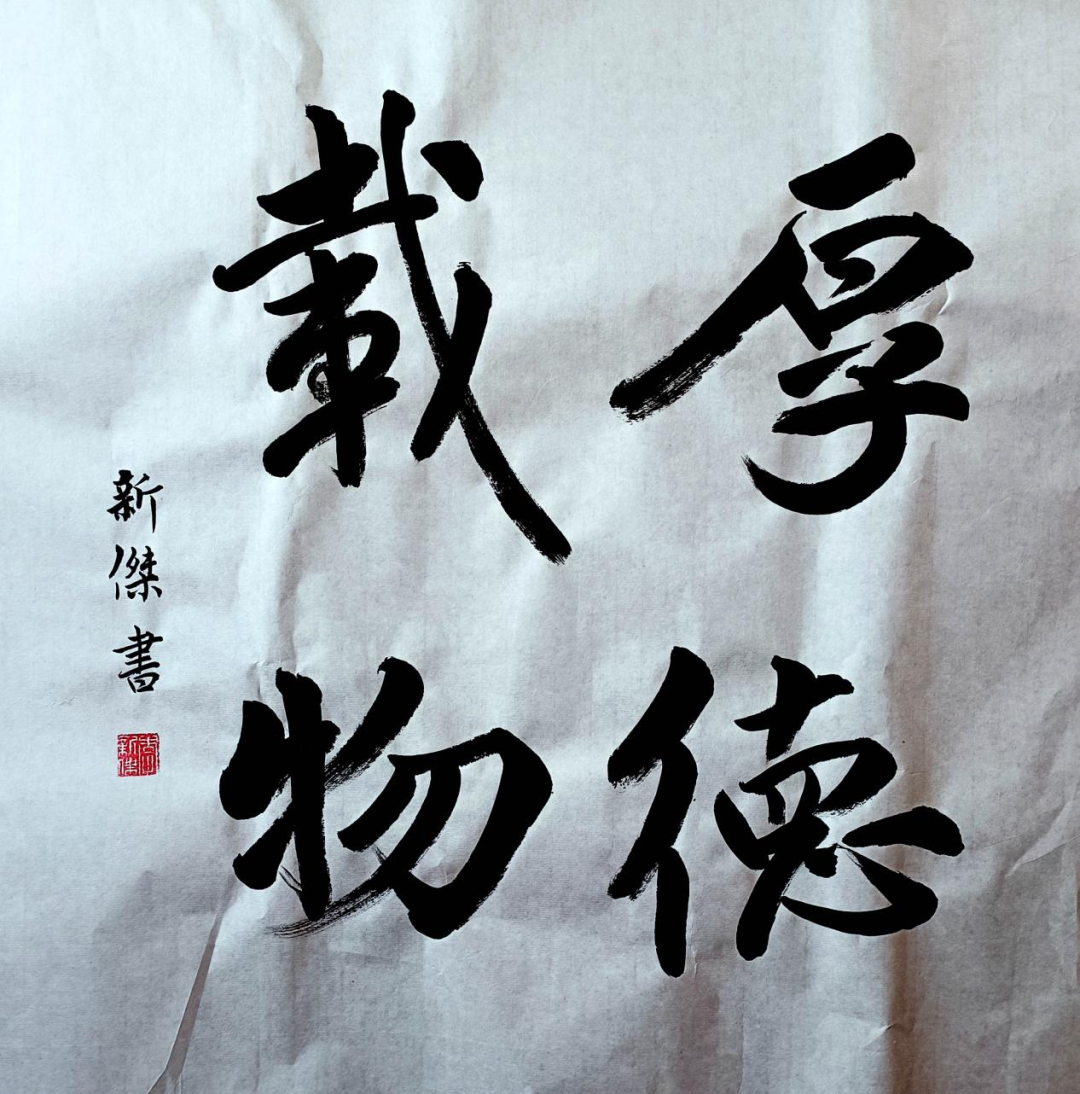 厚德
載物
新傑書